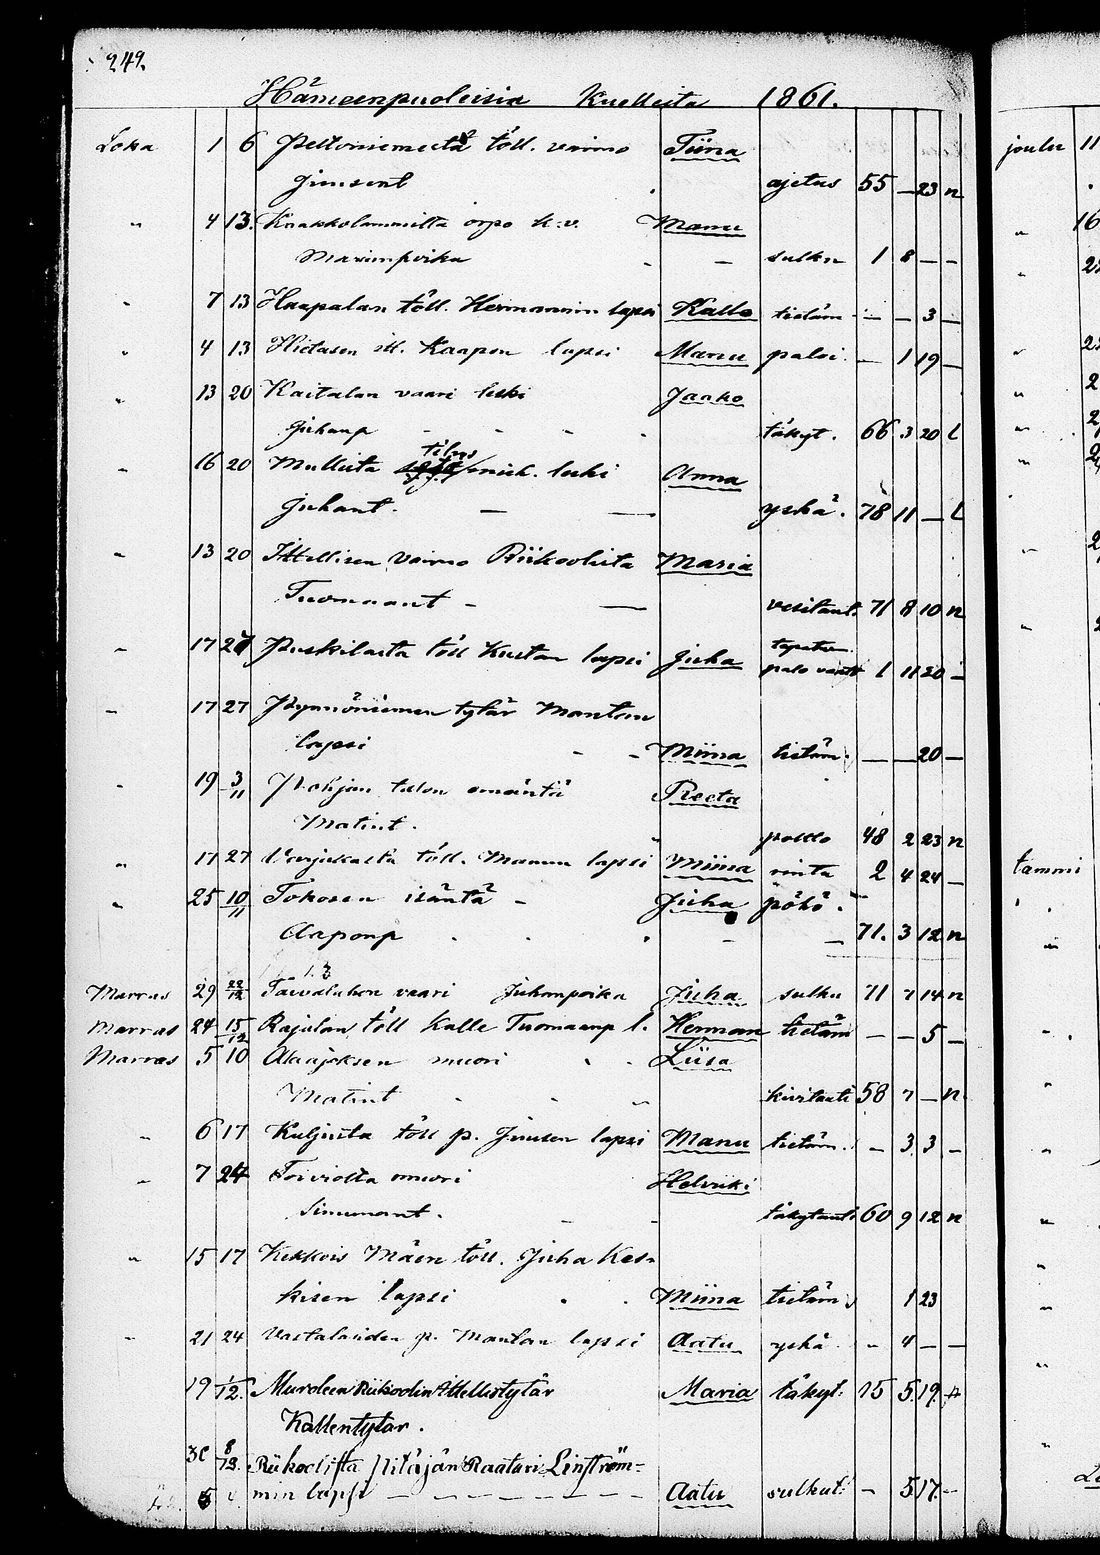 242.
Hämeenpuoleisia Kuolleita 1861.
Loka 1 6 Peltoniemestä töll. vaimo Tiina
Juusent ajetus 55 — 23 n
" 4 13. Kaakkolammilta orpo h.v. Manu
Marianpoika — sulku 1 8 — —
" 7 13 Haapalan töll. Hermannin lapsi Kalle tietäm — — 3 —
" 4 13 Hietasen itl. Kaapon lapsi Manu paloi. — 1 19 —
" 13 20 Kaitalan vaari leski Jaako
Juhanp - - - - täkyt. 66 3 20 l
" 16 20 Mullista tilus leski Anna
Juhant. — — yskä. 78 11 — l
" 13 20 Ittellisen vaimo Riikoolista Maria
Tuomaant - — vesitaut. 71 8 10 n
" 17 27 Puskilasta töll Kustan lapsi Juha tapatur
palo 1 11 20 —
" 17 27 Pynnöniemen tytär Mantan
lapsi - - Miina tietäm. — — 20 —
" 19 3/11 Pohjan talon emäntä Reeta
Matint. poltto 48 2 23 n
" 17 27 Varjukasta töll. Manun lapsi Miina rinta 2 4 24 —
" 25 10/11 Tokosen isäntä - Juha pöhö.
Aaponp . . . — — 71. 3 12 n
Marras 29 22/12 Taivalahon vaari Juhanpoika Juha sulku 71 7 14 n
Marras 24 15/12 Rajalan töll Kalle Tuomaanp l. Herman tietäm — — 5 —
Marras 5 10 Alaajoksen muori Liisa
Matint kivitauti 58 7 — n
" 6 17 Kuljusta töll p. Juusen lapsi Manu tietäm. — 3 3 —
" 7 24 Toiviolta muori Helviiki
Simunant. - - täkytauti 60 9 12 n
" 15 17 Kekkois Mäen töll. Juha Kes-
kisen lapsi . . Miina tietäm. 1 23
" 21 24 Vastalaiden p. Mantan lapsi Aatu yskä " 4 — —
19 1/12. Murolean Riikoolin Ittellistytär Maria täkyt. 15 5 19. n
Kallentytär.
30 8/12. Riikoolista pitäjän Raatari Linström-
min lapsi — — — — — Aatu sulkut: - 5 17. -
joulu 11
16
tammi